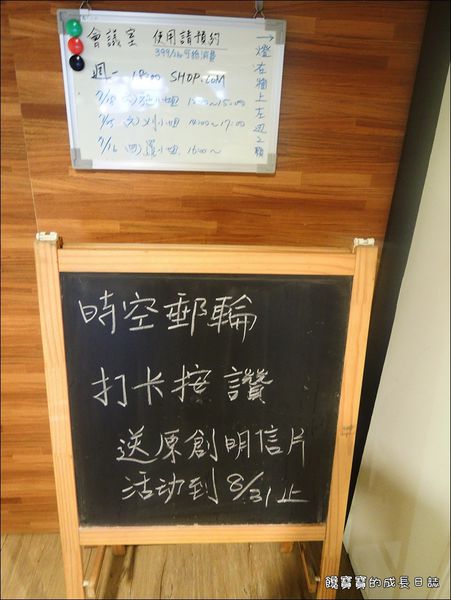 會議室 使用請預約
399/2hr可抵消費
週一 18:00 SHOP.COM
小姐 13:00~15:00
小姐 14:00~17:00
7/16 (四) 小姐 16:00~
→燈在牆上左邊2顆
時空郵輪
打卡按讚
送原創明信片
活动到 8/31止
饅寶寶的成長日誌